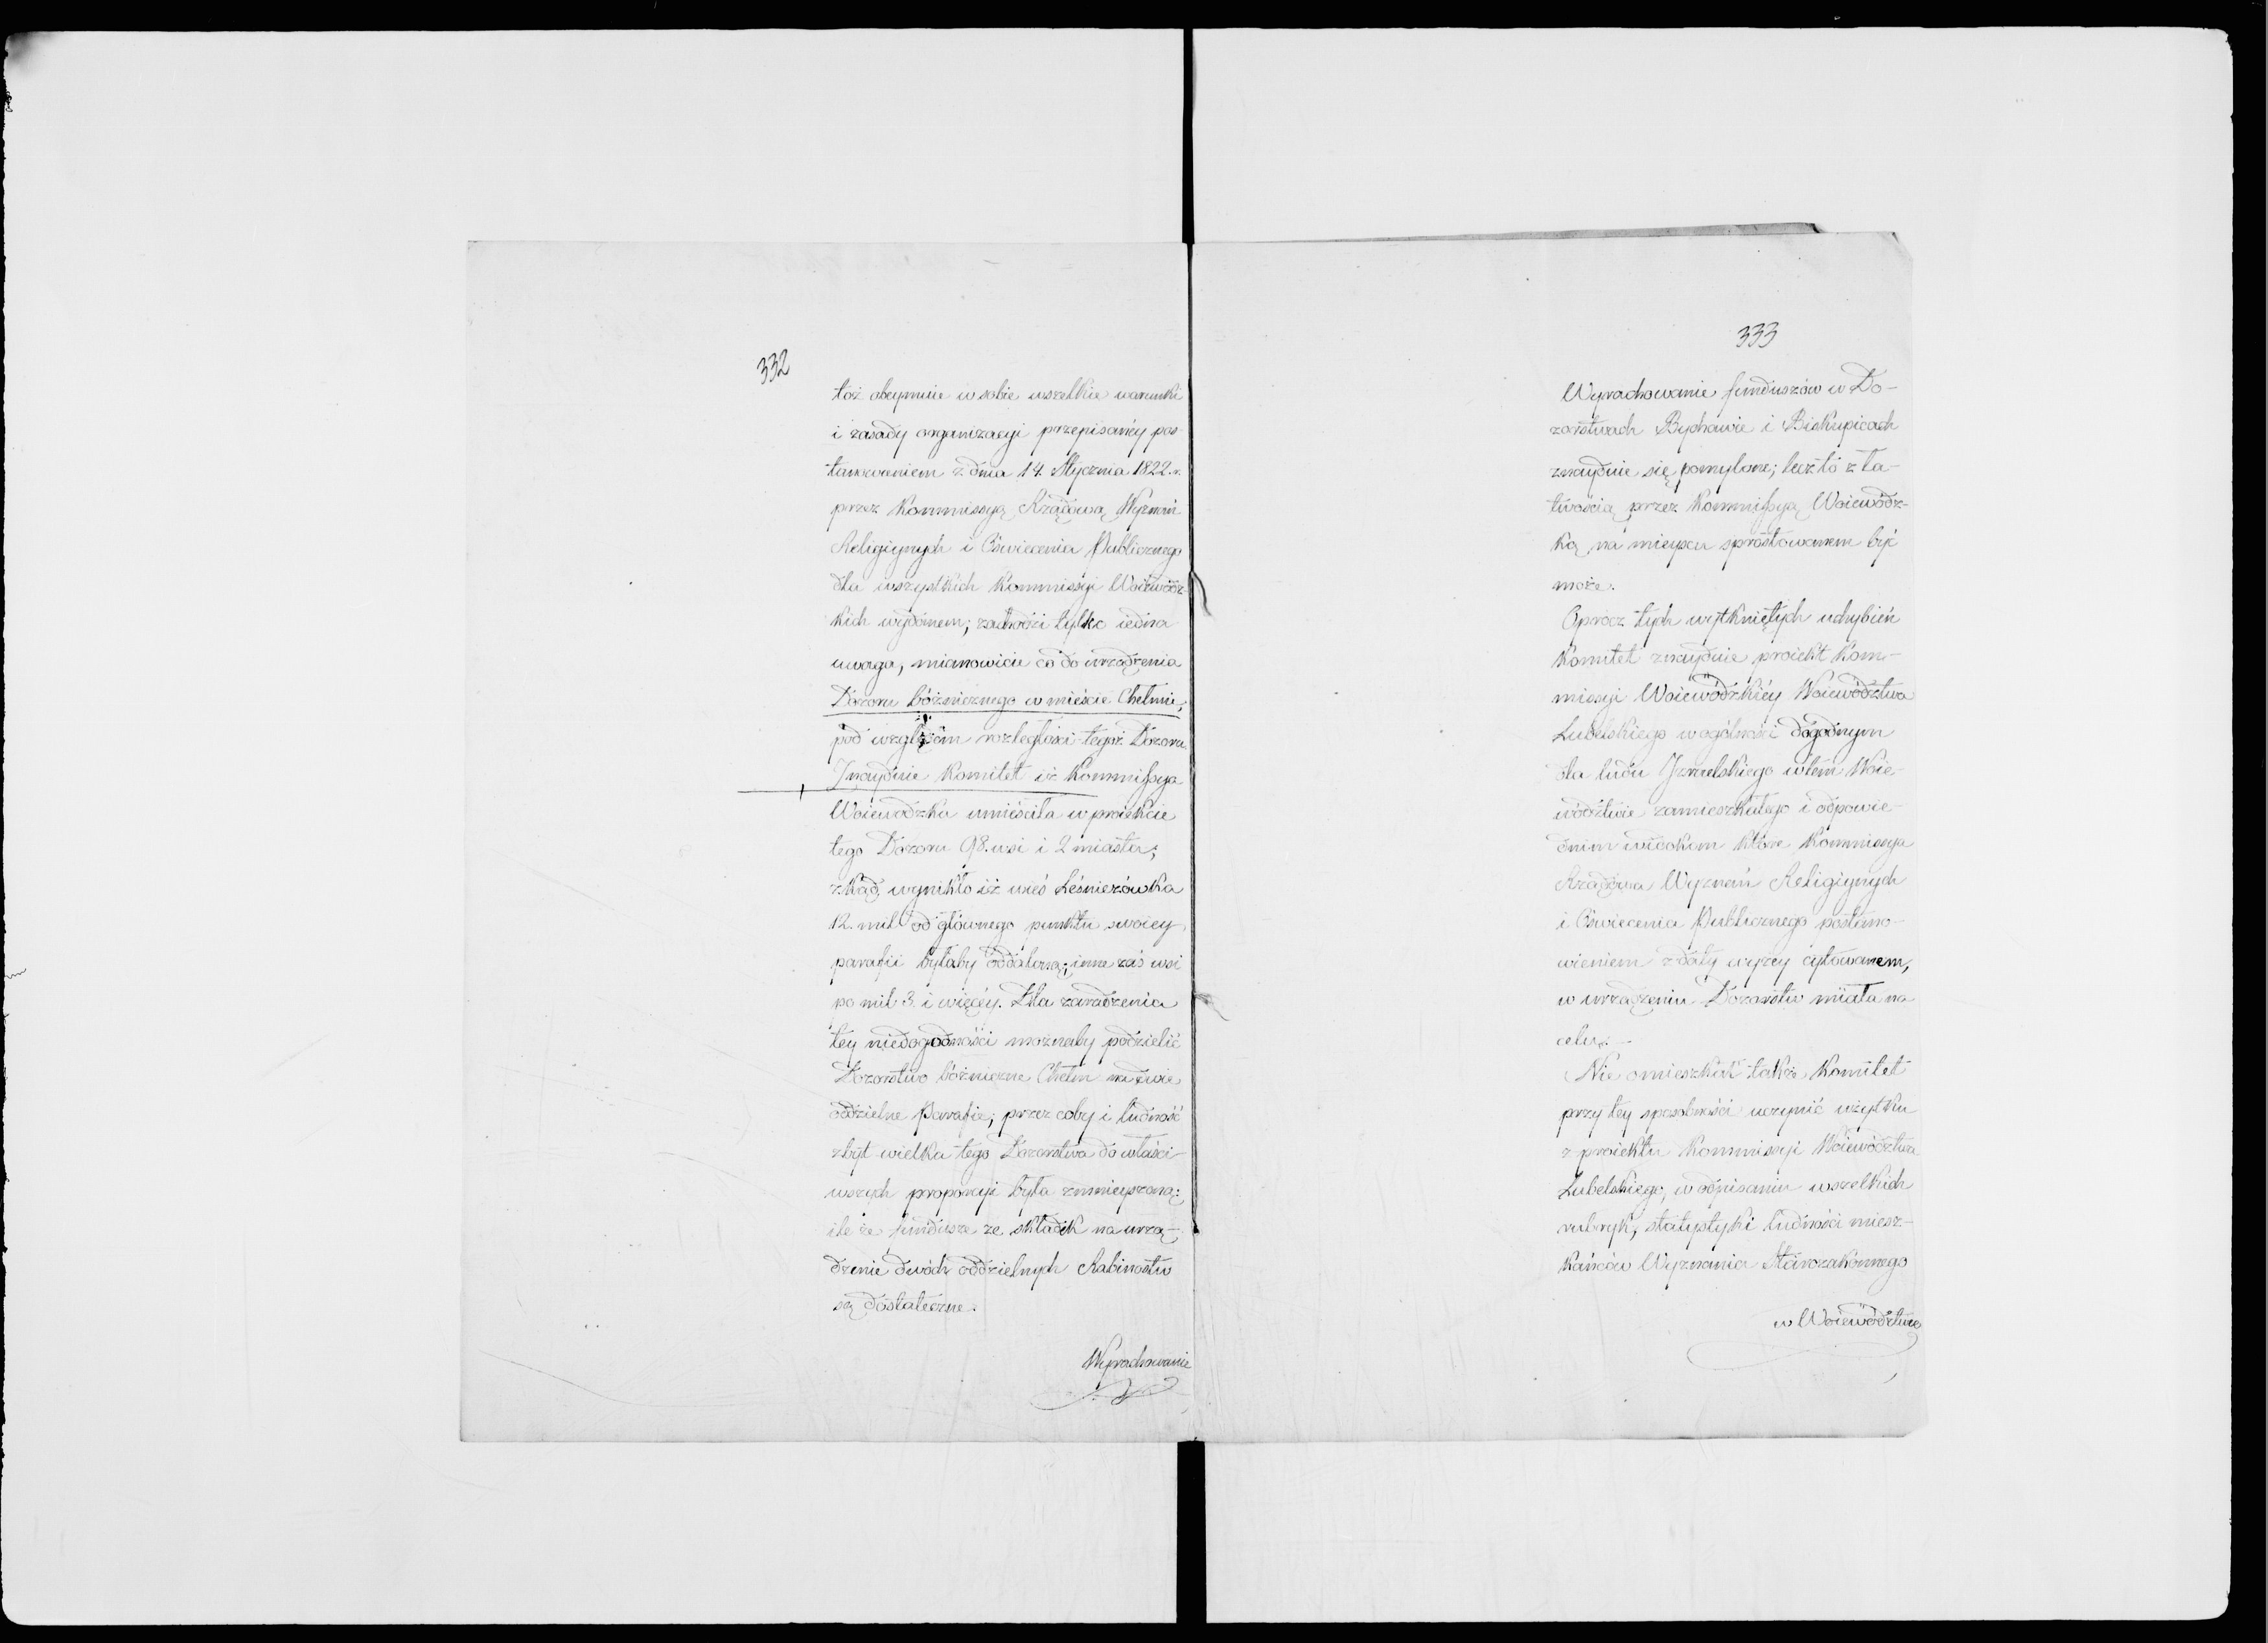 332
toż obeymuie w sobie wszelkie warunki
i zasady organizacyi przepisanéy pos-
tanowieniem z dnia 14. Stycznia 1822. r.
przez Kommissyą Rządową Wyznań
Religiynych i Oświecenia Publicznego
dla wszystkich Kommissyi Woiewódz-
kich wydanem; zachodzi tylko iedna
uwaga, mianowicie co do urządzenia
Dozoru bóżnicznego w mieście Chełmie,
pod względem rozległości tegoż Dozoru.
Znayduie Komitet iż Kommissya
Woiewódzka umieściła w proiekcie
tego Dozoru 98. wsi i 2 miasta;
zkąd wynikło iż wieś Leśniczówka
12. mil od głównego punktu swoiey
parafii byłaby oddaloną; inne zaś wsi
po mil 3. i więcéy. Dla zaradzenia
tey niedogodności możnaby podzielić
Dozorstwo bóżniczne Chełm na dwie
oddzielne Parafie; przez coby i ludność
zbyt wielka tego Dozorstwa do właści-
wszych proporcyi była zmnieyszoną;
ile że fundusze ze składek na urzą-
dzenie dwóch oddzielnych Rabinostw
są dostateczne.
Wyrachowanie
333
Wyrachowanie funduszów w Do-
zorstwach Bychawie i Biskupicach
znayduie się pomylone; lecz to z ła-
twością przez Kommissyą Woiewódz-
ką na mieyscu sprostowanem być
może.
Oprócz tych wytkniętych uchybień
Komitet znayduie proiekt Kom-
missyi Woiewódzkiéy Woiewództwa
Lubelskiego w ogólności dogodnym
dla ludu Izraelskiego w tém Woie-
wództwie zamieszkałego i odpowie-
dnim widokom które Kommissya
Rządowa Wyznań Religiynych
i Oświecenia Publicznego postano-
wieniem z daty wyzey cytowanem,
w urządzeniu Dozorstw miała na
celu. -
Nie omieszkał także Komitet
przy tey sposobności uczynić użytku
z proiektu Kommissyi Woiewództwa
Lubelskiego, w odpisaniu wszelkich
rubryk, statystyki ludności miesz-
kańców Wyznania Starozakonnego
w Woiewództwie